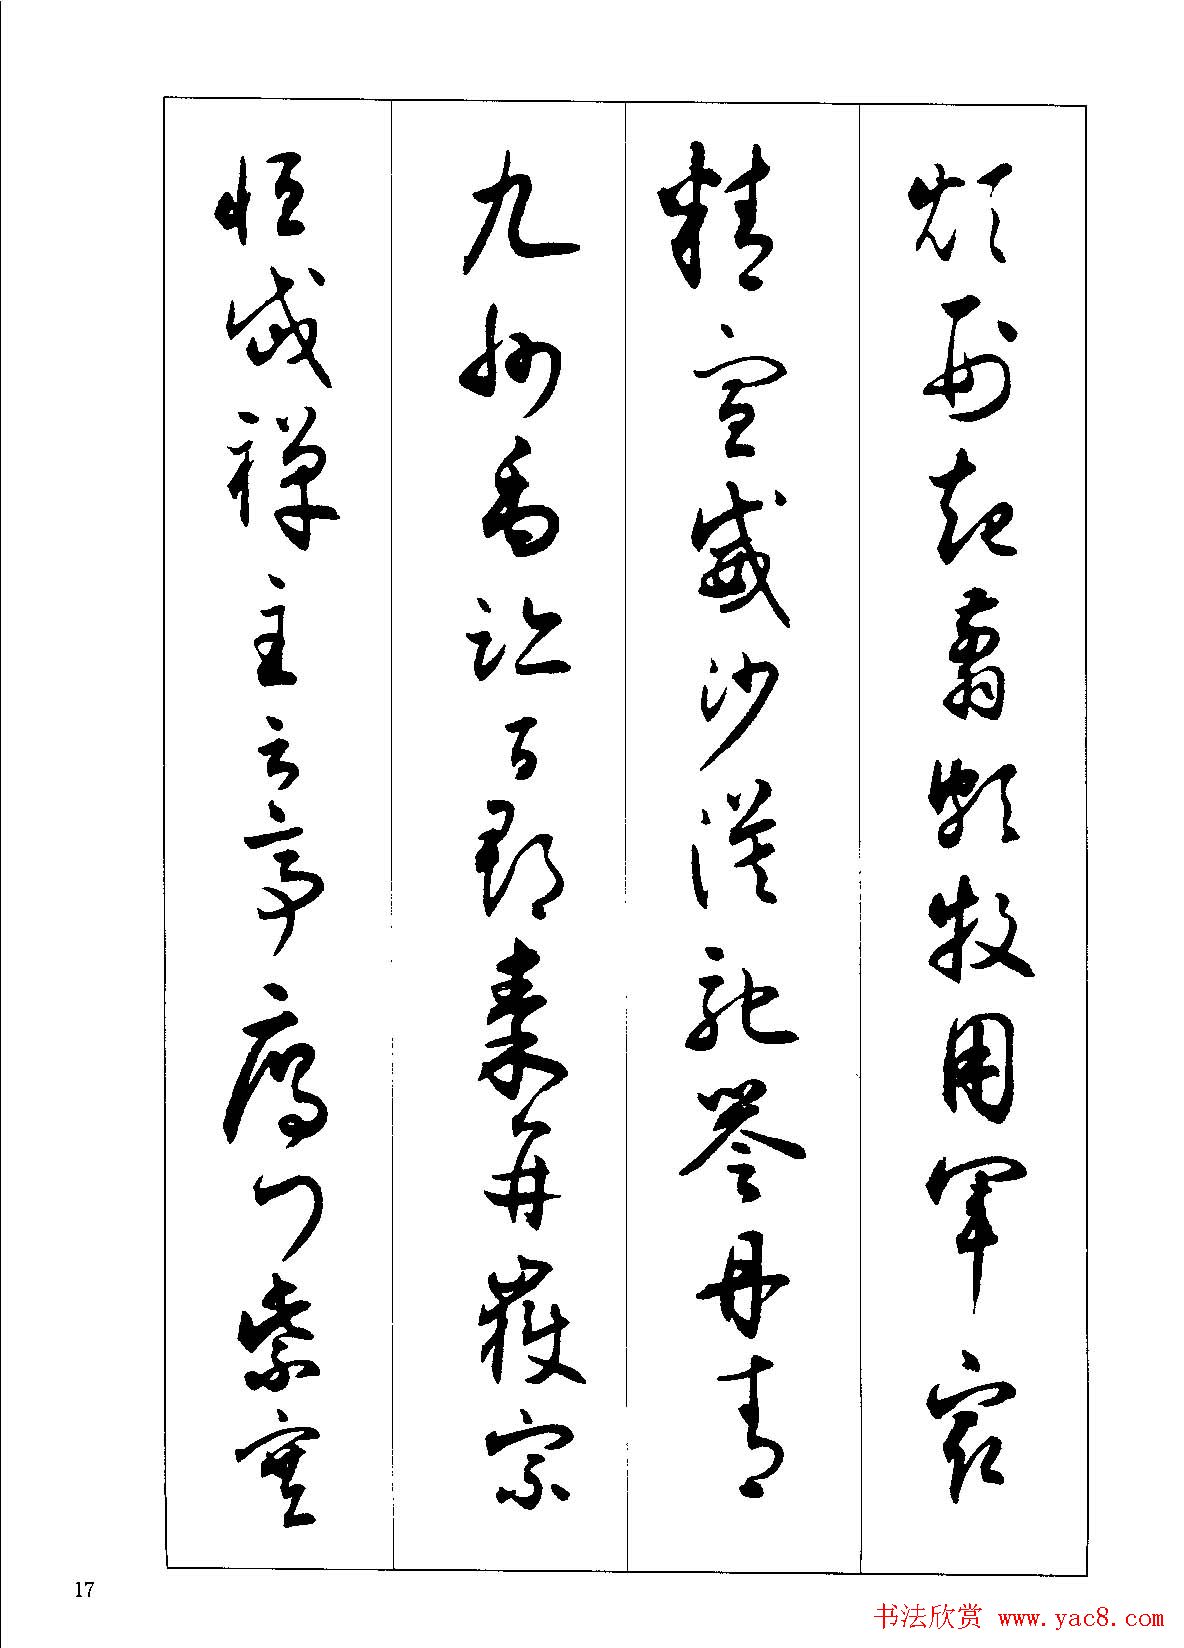 煩刑起翦頗牧用軍最
精宣威沙漠馳譽丹青
九州禹跡百郡秦并嶽宗
恒岱禪主云亭雁門紫塞
17
书法欣赏 www.yac8.com